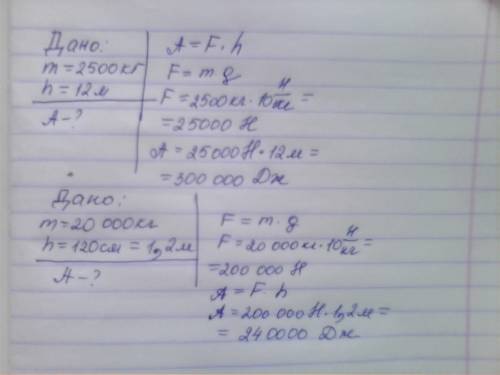 Дано:
m = 2500 кг
h = 12 м
A - ?
A = F · h
F = m g
F = 2500 кг · 10 Н/кг =
= 25000 Н
A = 25000 Н · 12 м =
= 300 000 Дж
Дано:
m = 20 000 кг
h = 120 см = 1,2 м
A - ?
F = m · g
F = 20 000 кг · 10 Н/кг =
= 200 000 Н
A = F · h
A = 200 000 Н · 1,2 м =
= 240000 Дж